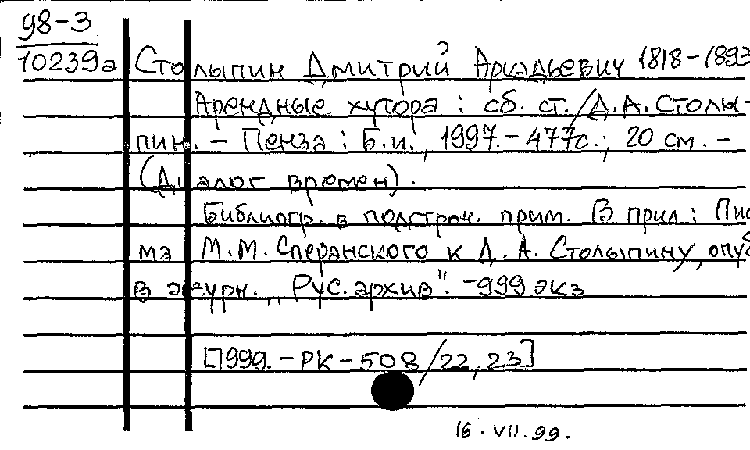 98-3
10239а Столыпин Дмитрий Аркадьевич 1818-1893
Арендные хутора : сб. ст. / Д.А. Столы-
пин. - Пенза : Б.и., 1997. - 477с. ; 20 см. -
(Диалог времен).
Библиогр. в подстроч. прим. В прил.: Пис
ма М.М. Сперанского к Д.А. Столыпину, опуб
в журн. „Рус. архив". - 999 экз
[1999. - РК - 508/22, 23]
16. VII. 99.